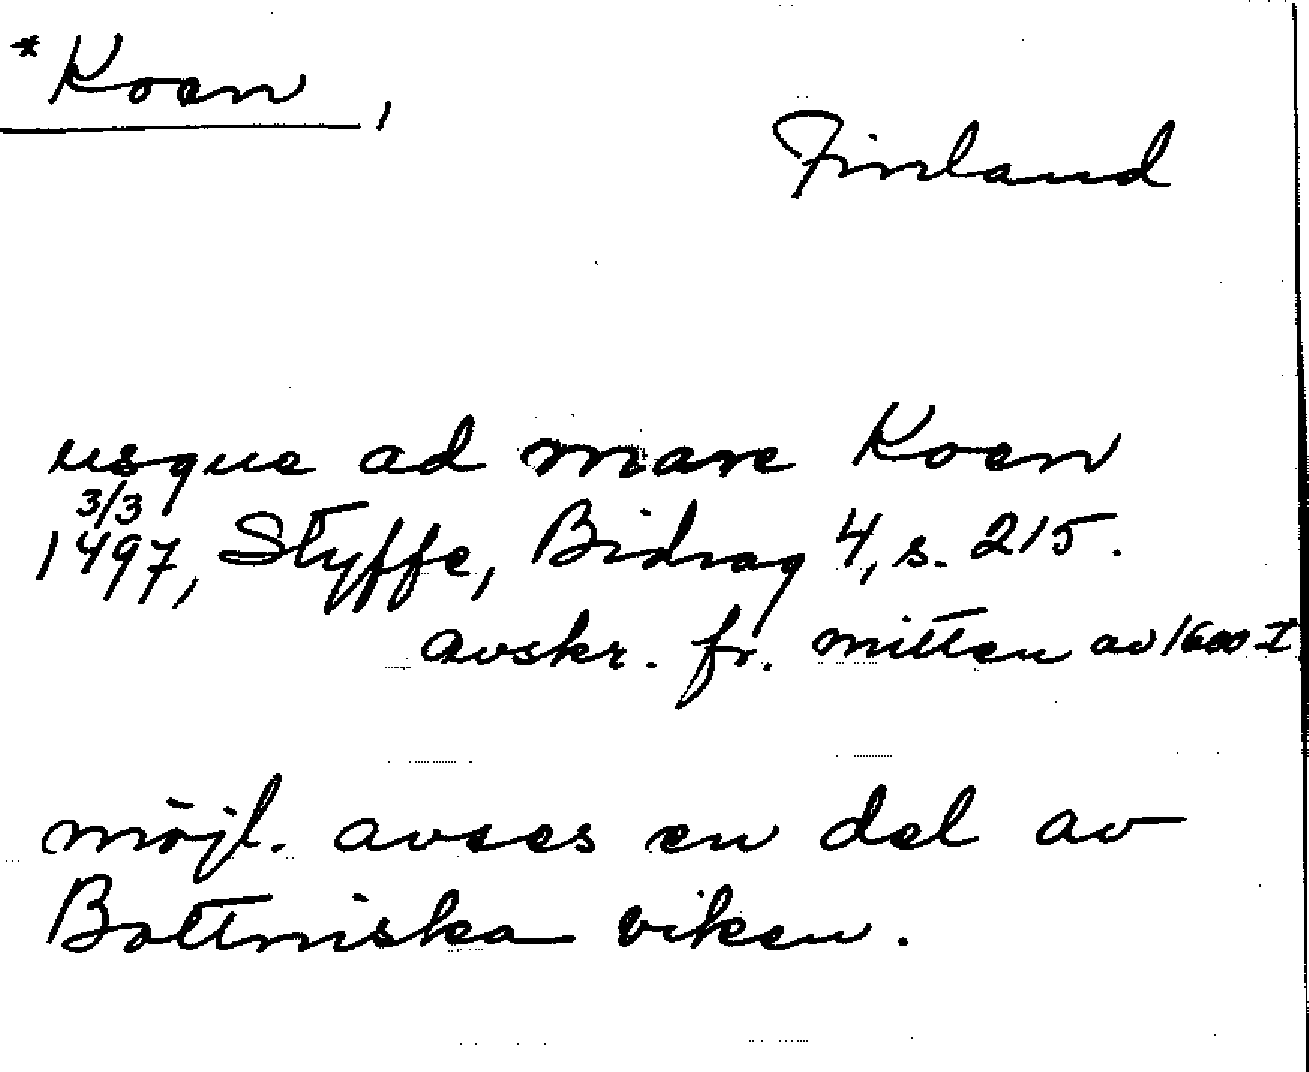 *Koen,
Finland
usque ad mare Koen
3/3
1497, Styffe, Bidrag 4, s. 215.
avskr. fr. mitten av 1600-t
möjl. avses en del av
Bottniska viken.